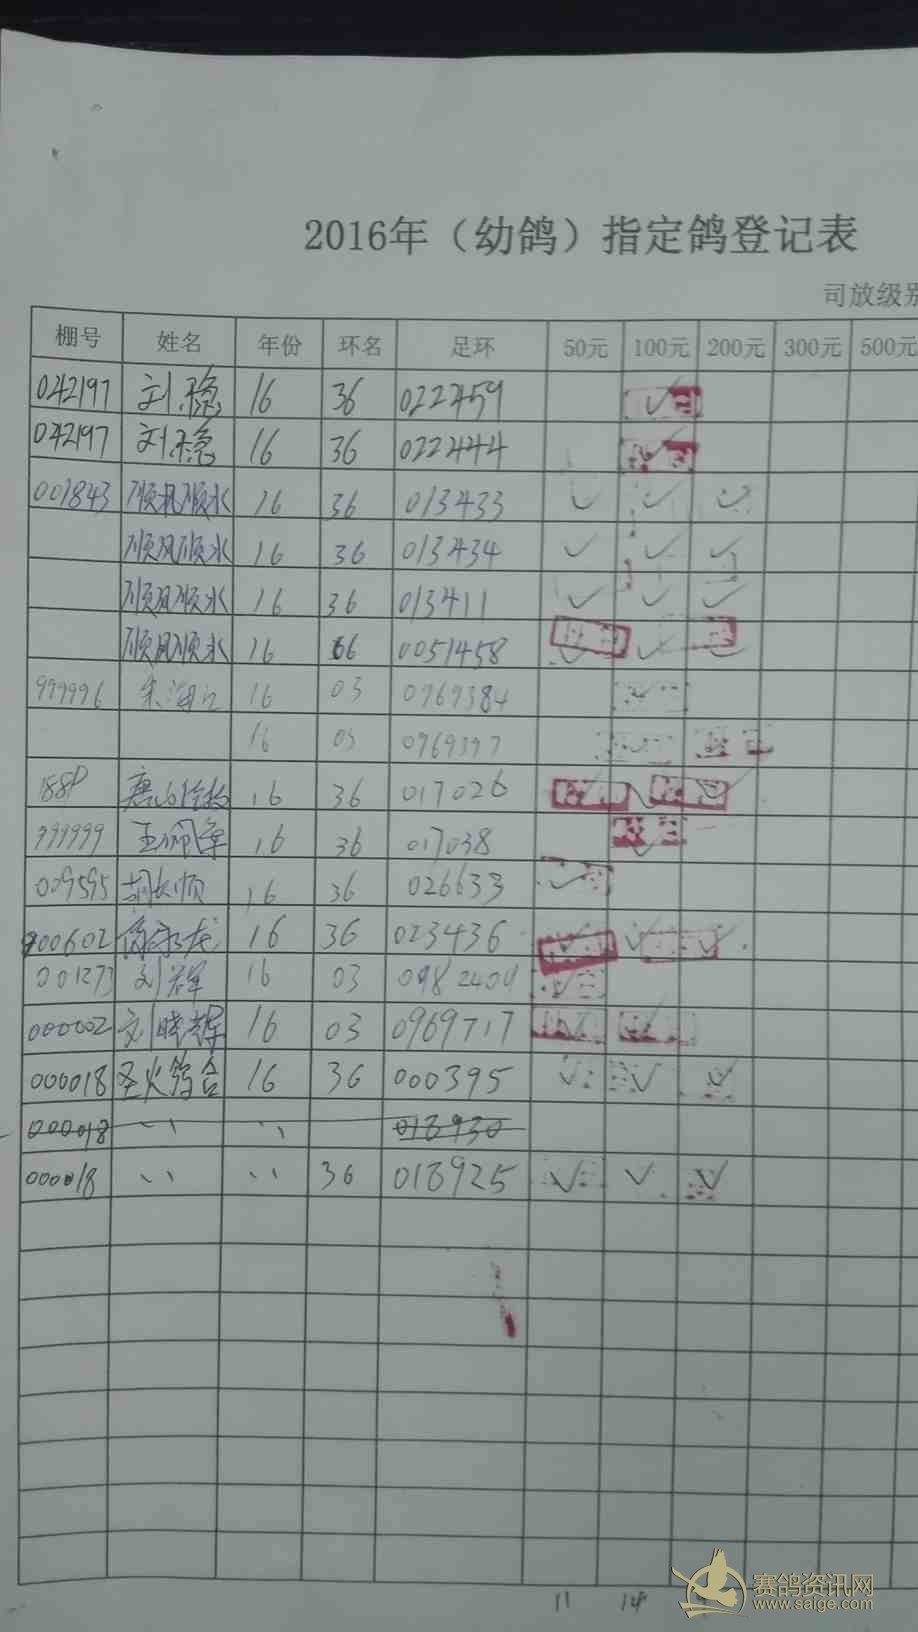 2016年（幼鸽）指定鸽登记表
司放级别
棚号 姓名 年份 环名 足环 50元 100元 200元 300元 500元
042197 刘稳 16 36 022459 ✓
042197 刘稳 16 36 022444 ✓
001843 顺风顺水 16 36 013433 ✓ ✓ ✓
顺风顺水 16 36 013434 ✓ ✓ ✓
顺风顺水 16 36 013411 ✓ ✓ ✓
顺风顺水 16 66 0051458 ✓ ✓ ✓
999996 朱海 16 03 0969384 ✓
16 03 0969397
16 36 017026
999999 王 军 16 36 017038 ✓
009595 胡长顺 16 36 026633 ✓
00602 龙 16 36 023436 ✓ ✓ ✓
001273 刘辉 16 03 0982400 ✓
000002 刘晓辉 16 03 0969717 ✓ ✓
000018 圣火鸽舍 16 36 000395 ✓ ✓ ✓
000018 〃 〃 013930
000018 〃 〃 36 018925 ✓ ✓ ✓
11 14
赛鸽资讯网
www.saige.com